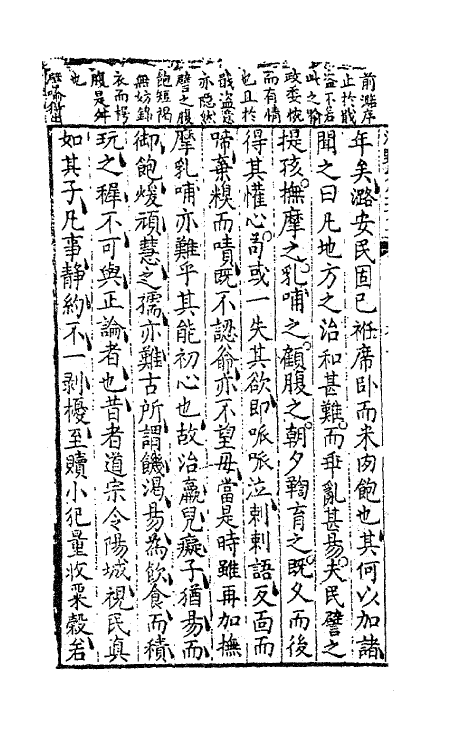 前潞序
止於戢
盜不若
此之喻
政委惋
而有情
也且於
戢盜意
亦隐然
譬之腹
飽短褐
無妨錦
衣而樗
腹是舛
也
年矣潞安民固已袵席卧而米肉飽也其何以加諸
聞之曰凡地方之治和甚難而乖亂甚易夫民譬之
提孩撫摩之乳哺之顧腹之朝夕鞠育之既久而後
得其懽心苟或一失其欲即呱呱泣刺刺語反面而
啼棄糗而嘖既不認翁亦不望毋當是時雖再加撫
摩乳哺亦難乎其能初心也故治羸兒癡子猶易而
御飽煖頑慧之孺亦難古所謂饑渴易為飲食而積
玩之穉不可與正論者也昔者道宗令陽城視民真
如其子凡事静約不一剥擾至贖小犯量收粟穀若